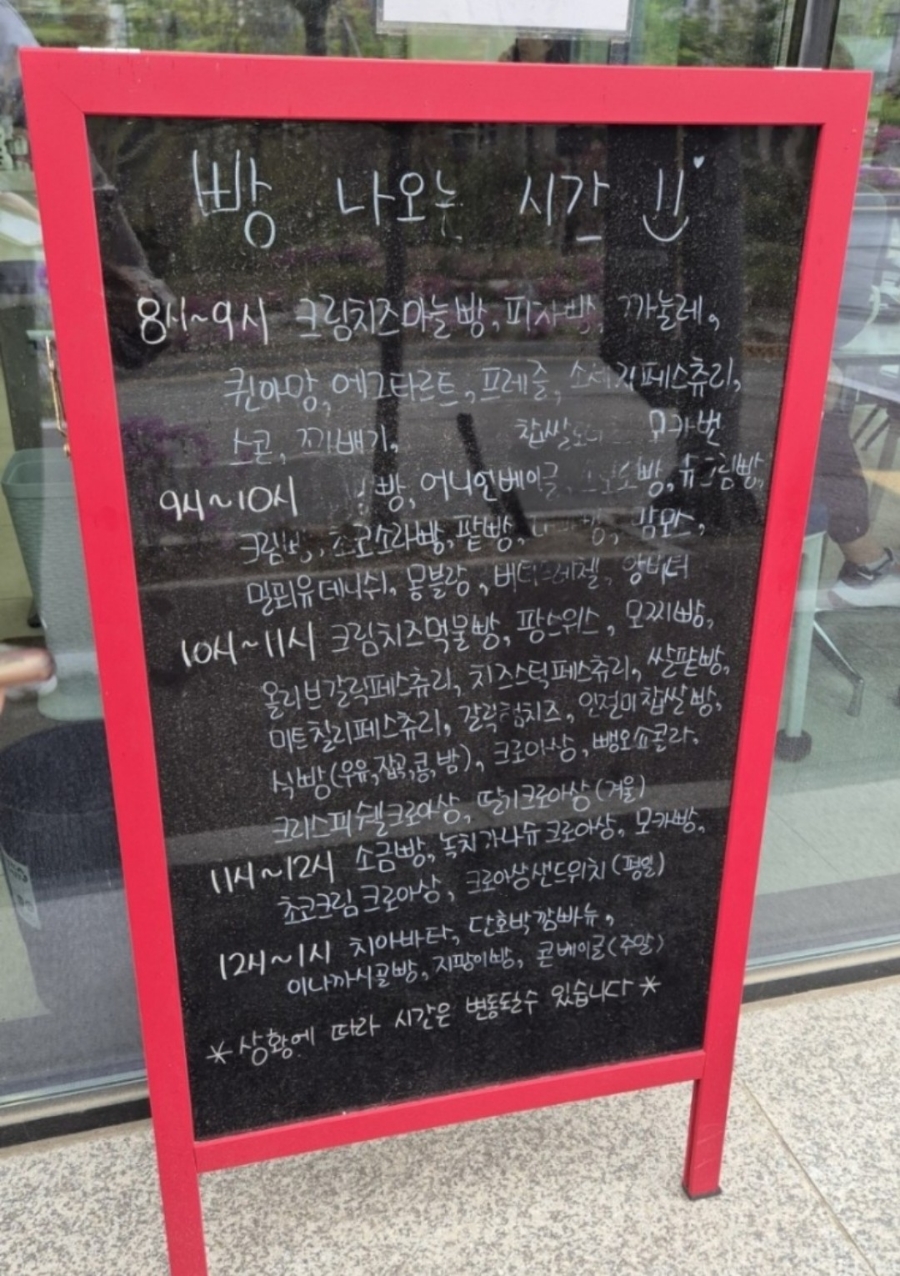 빵 나오는 시간
8시~9시 크림치즈마늘빵, 피자빵, 까눌레,
퀸아망, 에그타르트, 프레즐, 소세지페스츄리,
스콘, 꽈배기, 찹쌀 모카번
9시~10시 빵, 어니언베이글, 빵, 슈크림빵,
크림빵, 초코소라빵, 팥빵, 맘모스,
밀푀유데니쉬, 몽블랑, 버터프레젤, 앙버터
10시~11시 크림치즈먹물빵, 팡스위스, 모찌빵,
올리브갈릭페스츄리, 치즈스틱페스츄리, 쌀팥빵,
미트칠리페스츄리, 갈릭크림치즈, 인절미찹쌀빵,
식빵(우유,잡곡,콩,밤), 크로아상, 뺑오쇼콜라,
크리스피쉘크로아상, 딸기크로아상(겨울)
11시~12시 소금빵, 녹차가나슈크로아상, 모카빵,
초코크림크로아상, 크로아상샌드위치(평일)
12시~1시 치아바타, 단호박깜빠뉴,
이나까시골빵, 지팡이빵, 콘베이글(주말)
*상황에 따라 시간은 변동될수 있습니다*